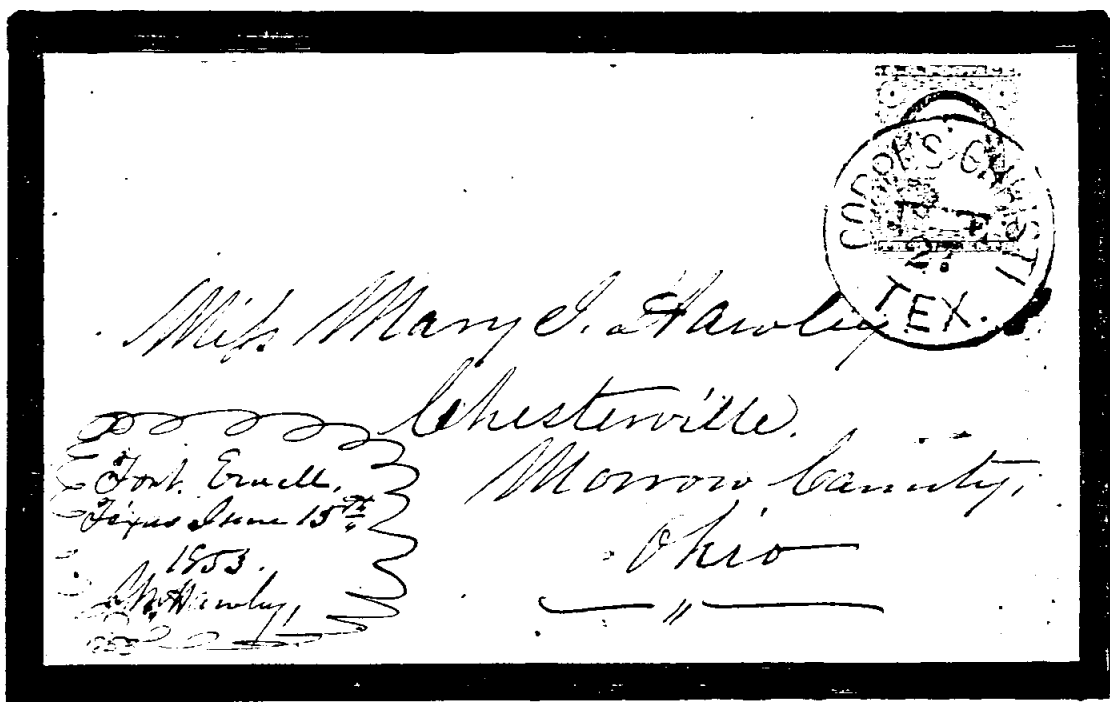 CORPUS CHRISTI
TEX.
Miss Mary J. Hawley
Chesterville.
Morrow County,
Ohio
Fort. Ewell,
Texas June 15th
1853.
Hawley,